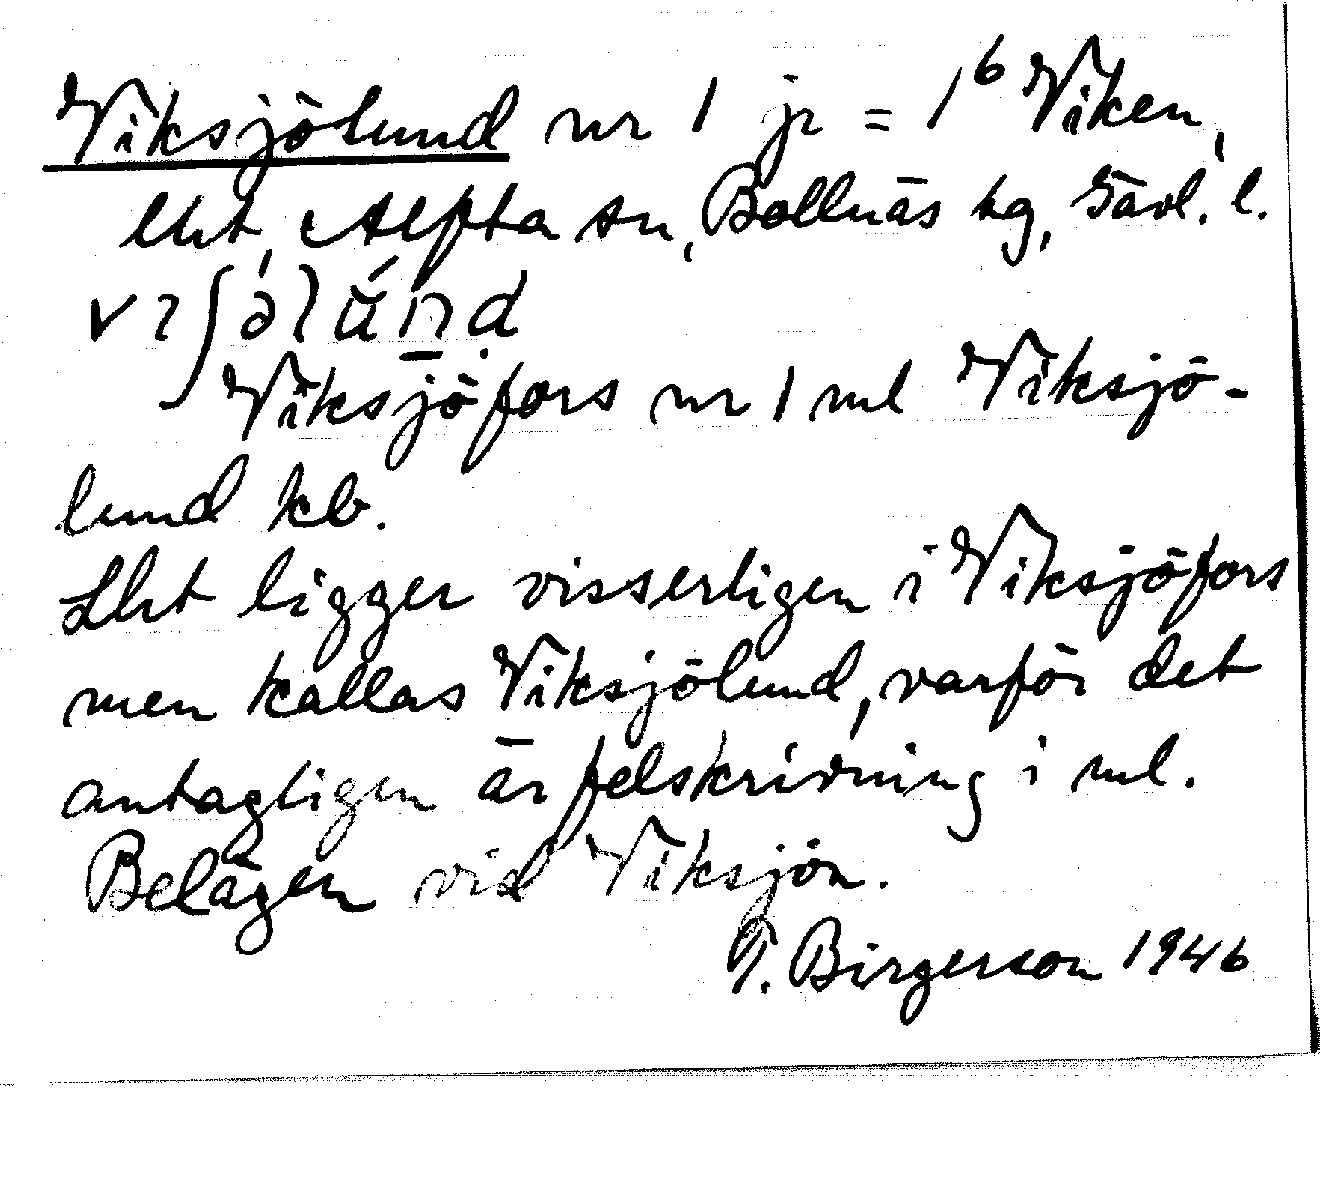 Viksjölund nr 1 jr = 1⁶ Viken,
lht, Alfta sn, Bollnäs hg, Gävl. l.
Viksjöfors nr 1 ml Viksjö-
lund kb.
Lht ligger visserligen i Viksjöfors
men kallas Viksjölund, varför det
antagligen är felskrivning i ml.
Belägen vid Viksjön.
T. Birgerson 1946